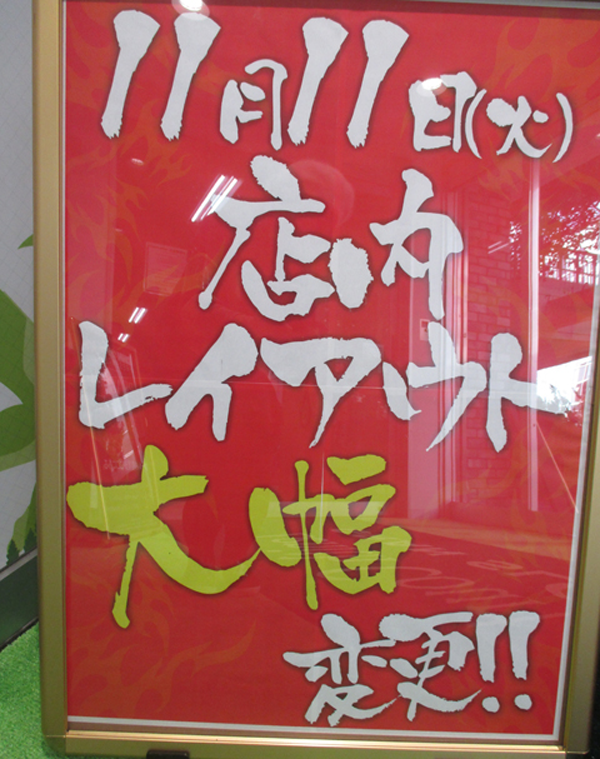 11月11日(火)
店内
レイアウト
大幅
変更!!